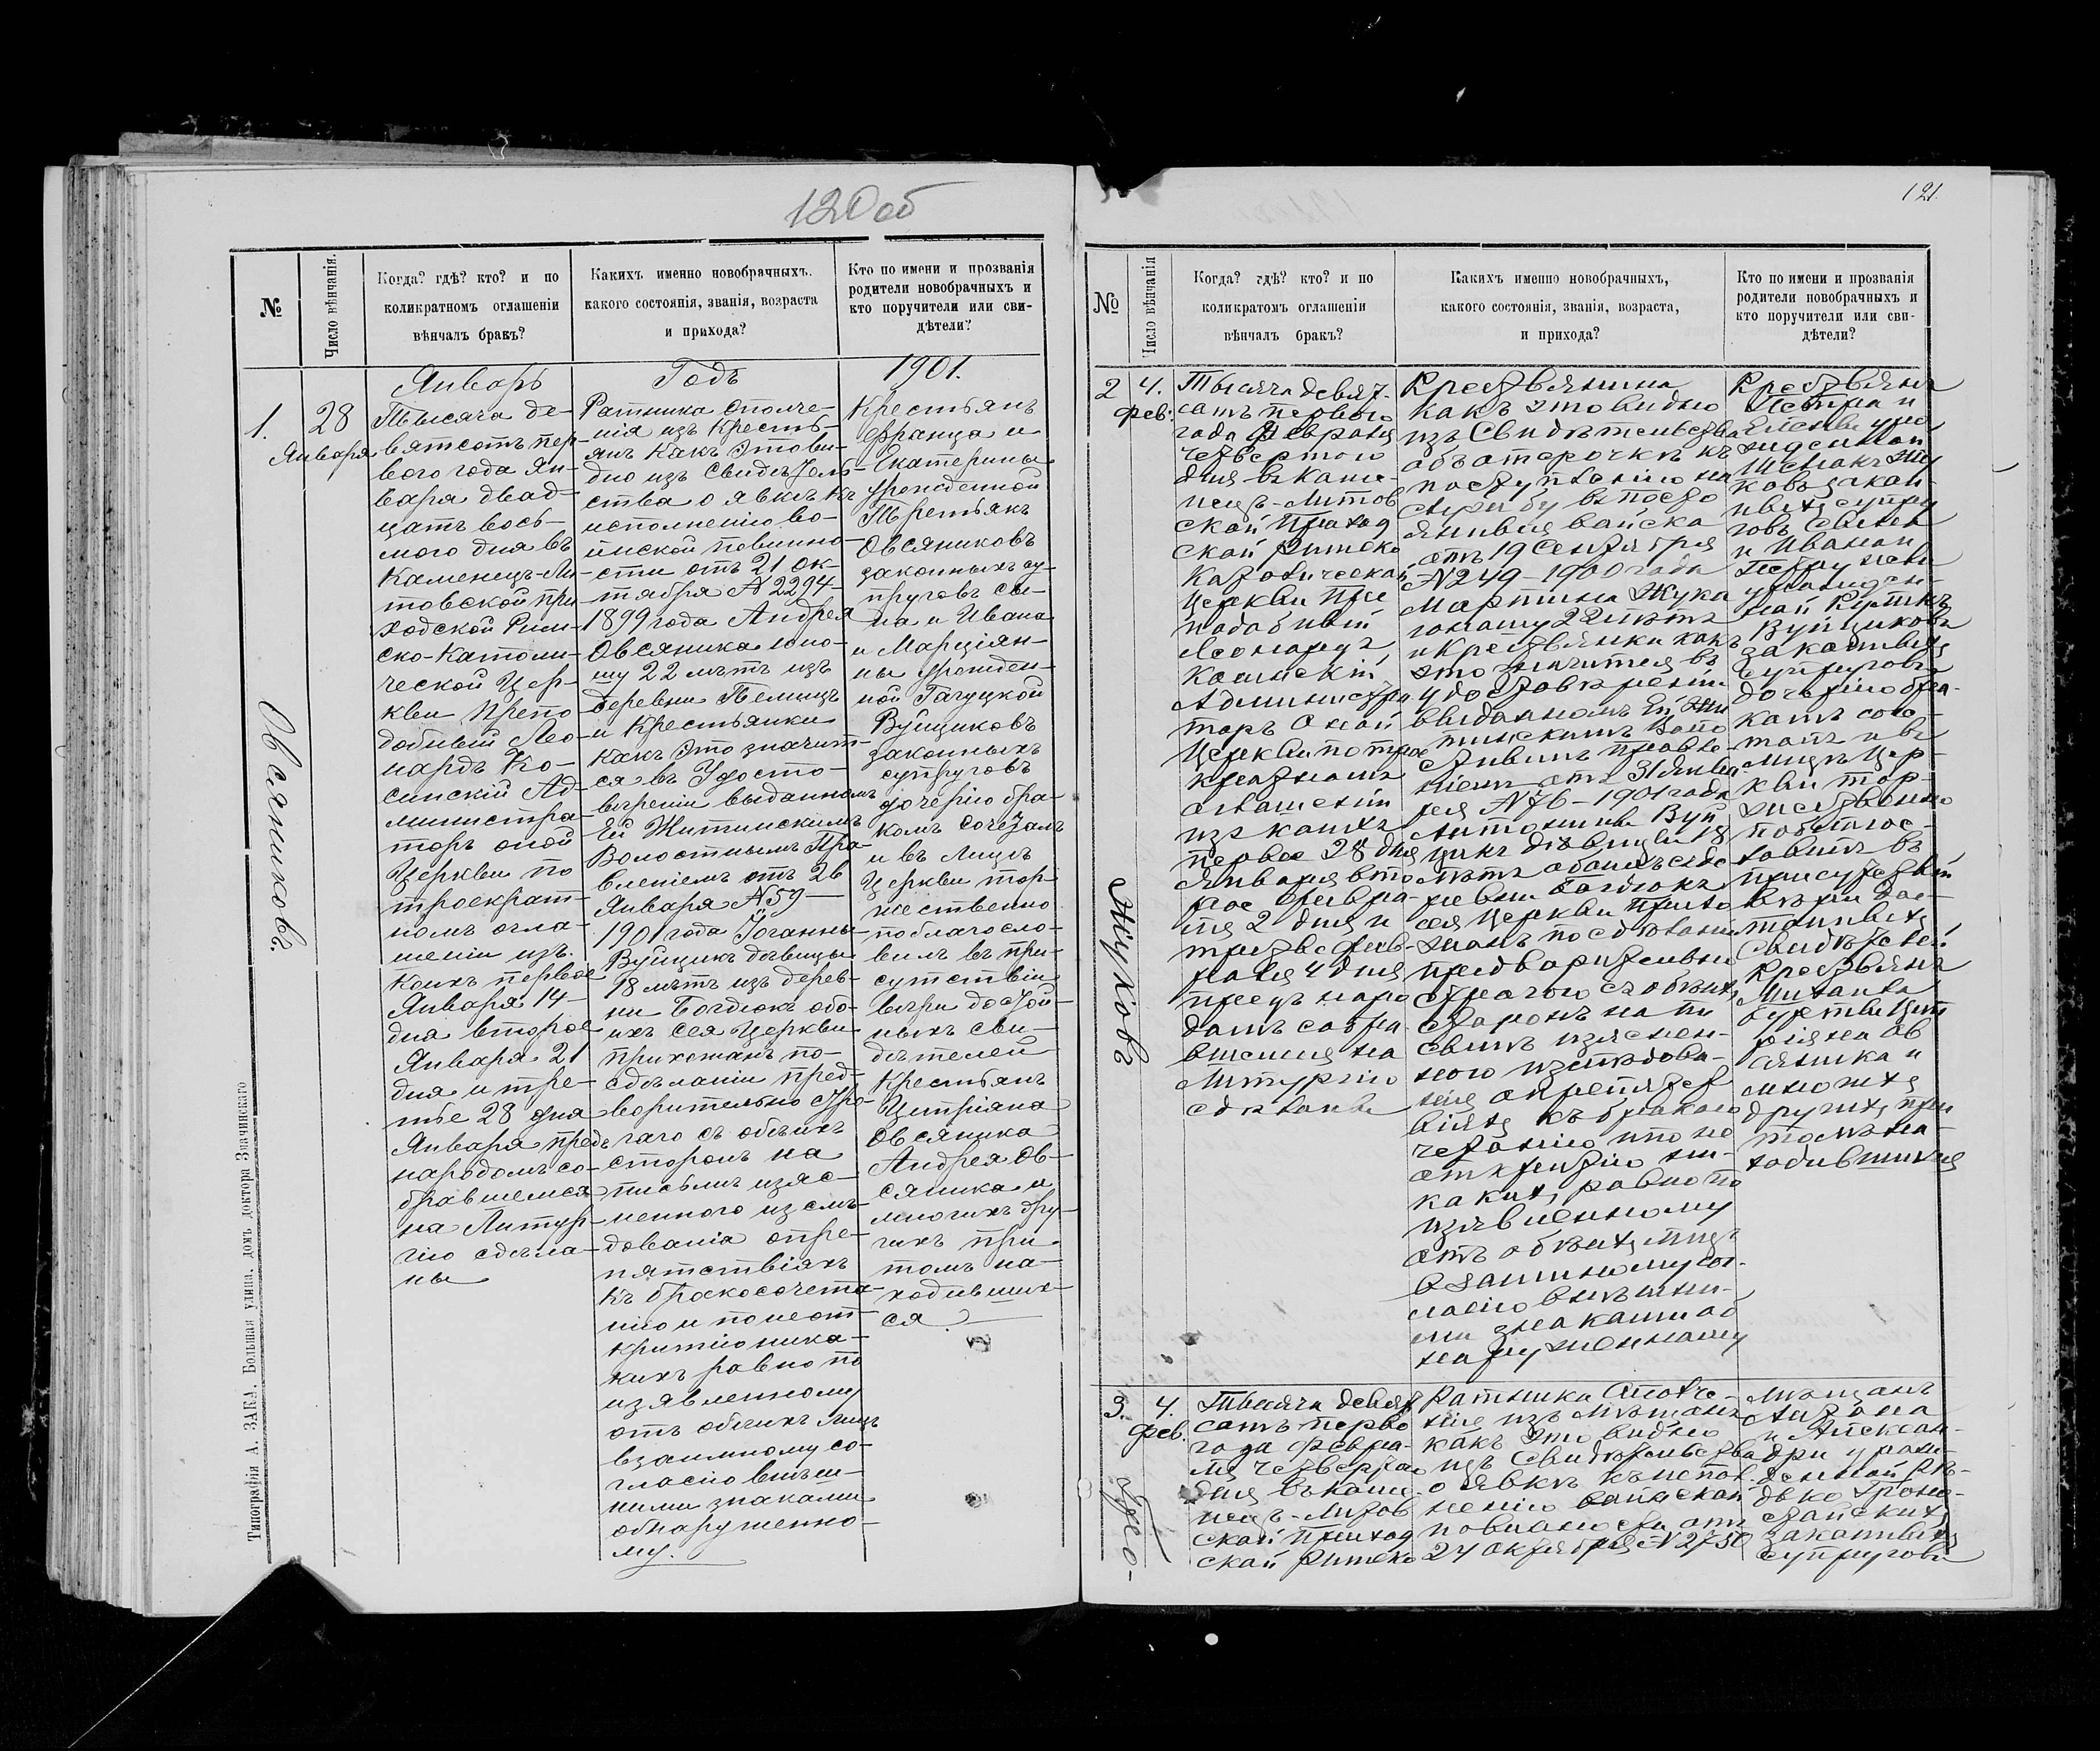 120 об
№
Число вѣнчанія.
Когда? гдѣ? кто? и по
коликратномъ оглашеніи
вѣнчалъ бракъ?
Какихъ именно новобрачныхъ.
какого состоянія, званія, возраста
и прихода?
Кто по имени и прозванія
родители новобрачныхъ и
кто поручители или сви-
дѣтели?
Январь
Годъ
1901.
1.
28
Января
Овсяниковъ.
Тысяча де-
вятсотъ пер-
вого года Ян-
варя двад-
цать вось-
мого дня въ
Каменецъ-Ли-
товской при
ходской Рим-
ско-Католи-
ческой Цер-
кви Препо
добный Лео-
нардъ Ко-
синскій Ад-
министра-
торъ оной
Церкви по
троекрат-
номъ огла-
шеніи изъ
коихъ первое
Января 14
дня второе
Января 21
дня и тре-
тье 28 дня
Января предъ
народомъ со-
бравшемся
на Литур-
гію сдѣла-
ны
Ратника ополче-
нія изъ кресть-
янъ какъ это ви-
дно изъ Свидѣтель-
ства о явкѣ къ
исполненію во-
инской повинно-
сти отъ 21 Ок-
тября № 2294
1899 года Андрея
Овсяника юно-
шу 22 лѣтъ изъ
деревни Пелищъ
и Крестьянки
какъ это значит-
ся въ Удосто-
вѣреніи выданномъ
Ей Житинскимъ
Волостнымъ Пра-
вленіемъ отъ 26
Января № 59
1901 года Іоганны
Вуйщикъ дѣвицы
18 лѣтъ изъ дерев-
ни Богдюкъ обо-
ихъ сея Церкви
прихожанъ по
сдѣланіи пред-
ворительно стро-
гаго съ обѣихъ
сторонъ на
письмѣ изяс-
неннаго изслѣ-
дованія опре-
пятствіяхъ
къ бракосочета-
нію и по неот
крытію ника-
кихъ равно по
изявленному
отъ обѣихъ лицъ
взаимному со-
гласію внѣш-
ними знаками
обнаруженно-
му.
Крестьянъ
Франца и
Екатерины
урожденной
Третьякъ
Овсяниковъ
законныхъ су-
пруговъ сы-
на и Ивана
и Марціян-
ны урожден-
ной Гачуцкой
Вуйщиковъ
законныхъ
супруговъ
дочерію бра-
комъ сочеталъ
и въ лицѣ
Церкви тор-
жественно
поблагосло-
вилъ въ при-
сутствіи
вѣри достой-
ныхъ сви-
дѣтелей
Крестьянъ
Ципріяна
Овсяника
Андрея Ов-
сяника и
многихъ дру-
гихъ при
томъ на-
ходивших-
ся.
Типографія А. ЗАКА. Большая улица. домъ доктора Змачинскаго
121.
№
Число вѣнчанія
Когда? гдѣ? кто? и по
коликратомъ оглашеніи
вѣнчалъ бракъ?
Какихъ именно новобрачныхъ,
какого состоянія, званія, возраста,
и прихода?
Кто по имени и прозванія
родители новобрачныхъ и
кто поручители или сви-
дѣтели?
2
4.
фев.
Жуковъ
Тысяча девят-
сотъ первого
года Февраля
четвертого
дня въ Каме-
нецъ-Литов
ской Приход
ской Римско
Католической
Церкви Пре
подобный
Леонардъ
Косинскій
Администра
торъ Оной
Церкви по трое
кратномъ
оглашеніи
изъ коихъ
первое 28 дня
Января вто
рое Февра-
ля 2 дня и
третье Фев-
раля 4 дня
предъ наро
домъ собра-
вшемся на
Литургію
сдѣланы
Крестьянина
какъ это видно
изъ Свидѣтельства
объ отсрочкѣ къ
поступленію на
службу въ посто
янныя войска
отъ 19 Сентября
№ 249 - 1900 года
Мартина Жука
юношу 22 лѣтъ
и Крестьянки какъ
это значится въ
удостовѣреніи
выданномъ Ей Жи
тинскимъ Воло
стнымъ Правле-
ніемъ отъ 31 Янва
ря № 76 - 1901 года
Антонины Вуй
щикъ дѣвицы 18
лѣтъ обоихъ
Богдюкъ
сея Церкви прихо
жанъ по сдѣланіи
предварительны
строгого съ обѣихъ
сторонъ на пи
сьмѣ изяснен-
ного изслѣдова-
нія опрепятст
віяхъ къ бракосо
четанію и по не
открытію ни-
какихъ равно по
изявленному
отъ обѣихъ лицъ
взаимному сог-
ласію внѣшни-
ми знаками об
наруженному
Крестьянъ
Петра и
Шемякъ Жу
ковъ закон-
ныхъ супру
говъ сына
и Ивана и
урожден-
ной
Вуйщиковъ
законныхъ
супруговъ
дочерію бра-
комъ соче-
талъ и въ
лицѣ Цер-
кви тор-
жественно
поблагос-
ловилъ въ
присутствіи
вѣри дос-
тойныхъ
свидѣтелей
Крестьянъ
Михаила
Ципріяна Ов
сяника и
многихъ
другихъ при
томъ на-
ходившихся
3.
4.
фев.
Тысяча девят
сотъ перво
го года Февра-
ля четвертаго
дня въ Каме-
нецъ-Литов
ской Приход
ской Римско
Ратника Ополче-
нія изъ Мѣщанъ
какъ это видно
изъ Свидѣтельства
о явкѣ къ испол
ненію воинской
повинности отъ
24 Октября № 2750
Мѣщанъ
Антона
и Алексан-
дри урож-
денной
законныхъ
супруговъ